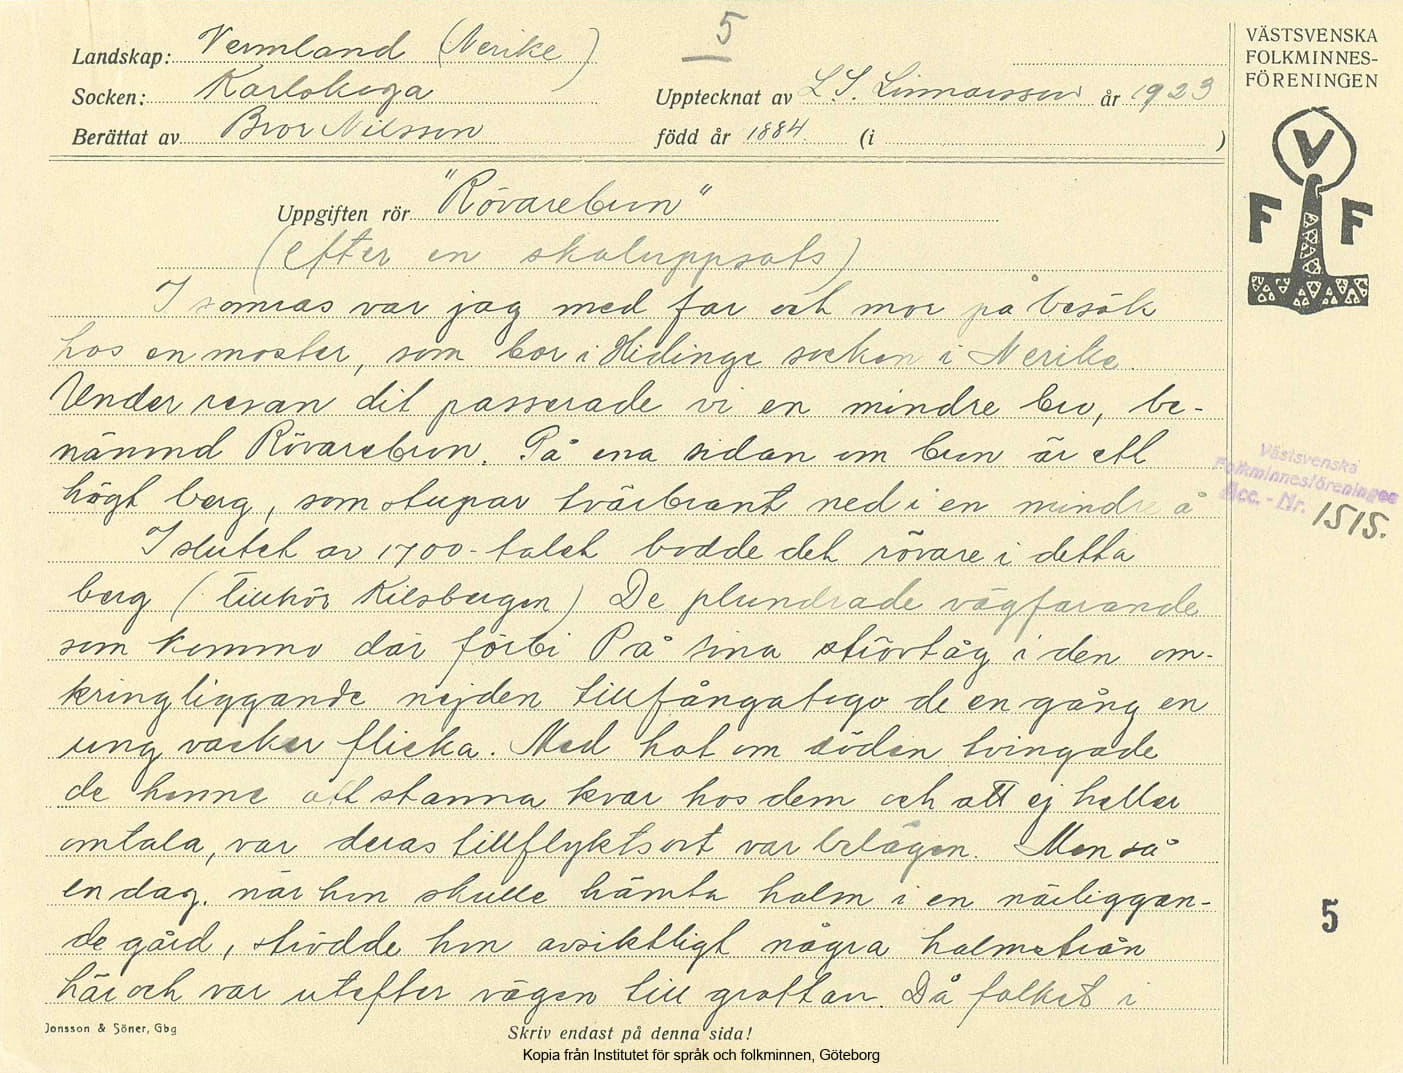 5
Landskap: Vermland (Nerike)
Socken: Karlskoga
Upptecknat av L. S. Linnarsson år 1923
Berättat av Bror Nilsson
född år 1884. (i )
VÄSTSVENSKA
FOLKMINNES-
FÖRENINGEN
V
F F
Uppgiften rör "Rövarebron"
(efter en skoluppsats)
I somras var jag med far och mor på besök
hos en moster, som bor i Hidinge socken i Nerike.
Under resan dit passerade vi en mindre bro, be-
nämnd Rövarebron. På ena sidan om bron är ett
högt berg, som stupar tvärbrant ned i en mindre å
I slutet av 1700-talet bodde det rövare i detta
berg (tillhör Kilsbergen) De plundrade vägfarande
som kommo där förbi På sina strövtåg i den om-
kringliggande nejden tillfångatogo de en gång en
ung vacker flicka. Med hot om döden tvingade
de henne att stanna kvar hos dem och att ej heller
omtala, var deras tillflyktsort var belägen. Men så
en dag, när hon skulle hämta halm i en närliggan-
de gård, strödde hon avsiktligt några halmstrån
här och var utefter vägen till grottan. Då folket i
Västsvenska
Folkminnesföreningen
Acc. - Nr. 1515.
5
Jonsson & Söner, Gbg
Skriv endast på denna sida!
Kopia från Institutet för språk och folkminnen, Göteborg